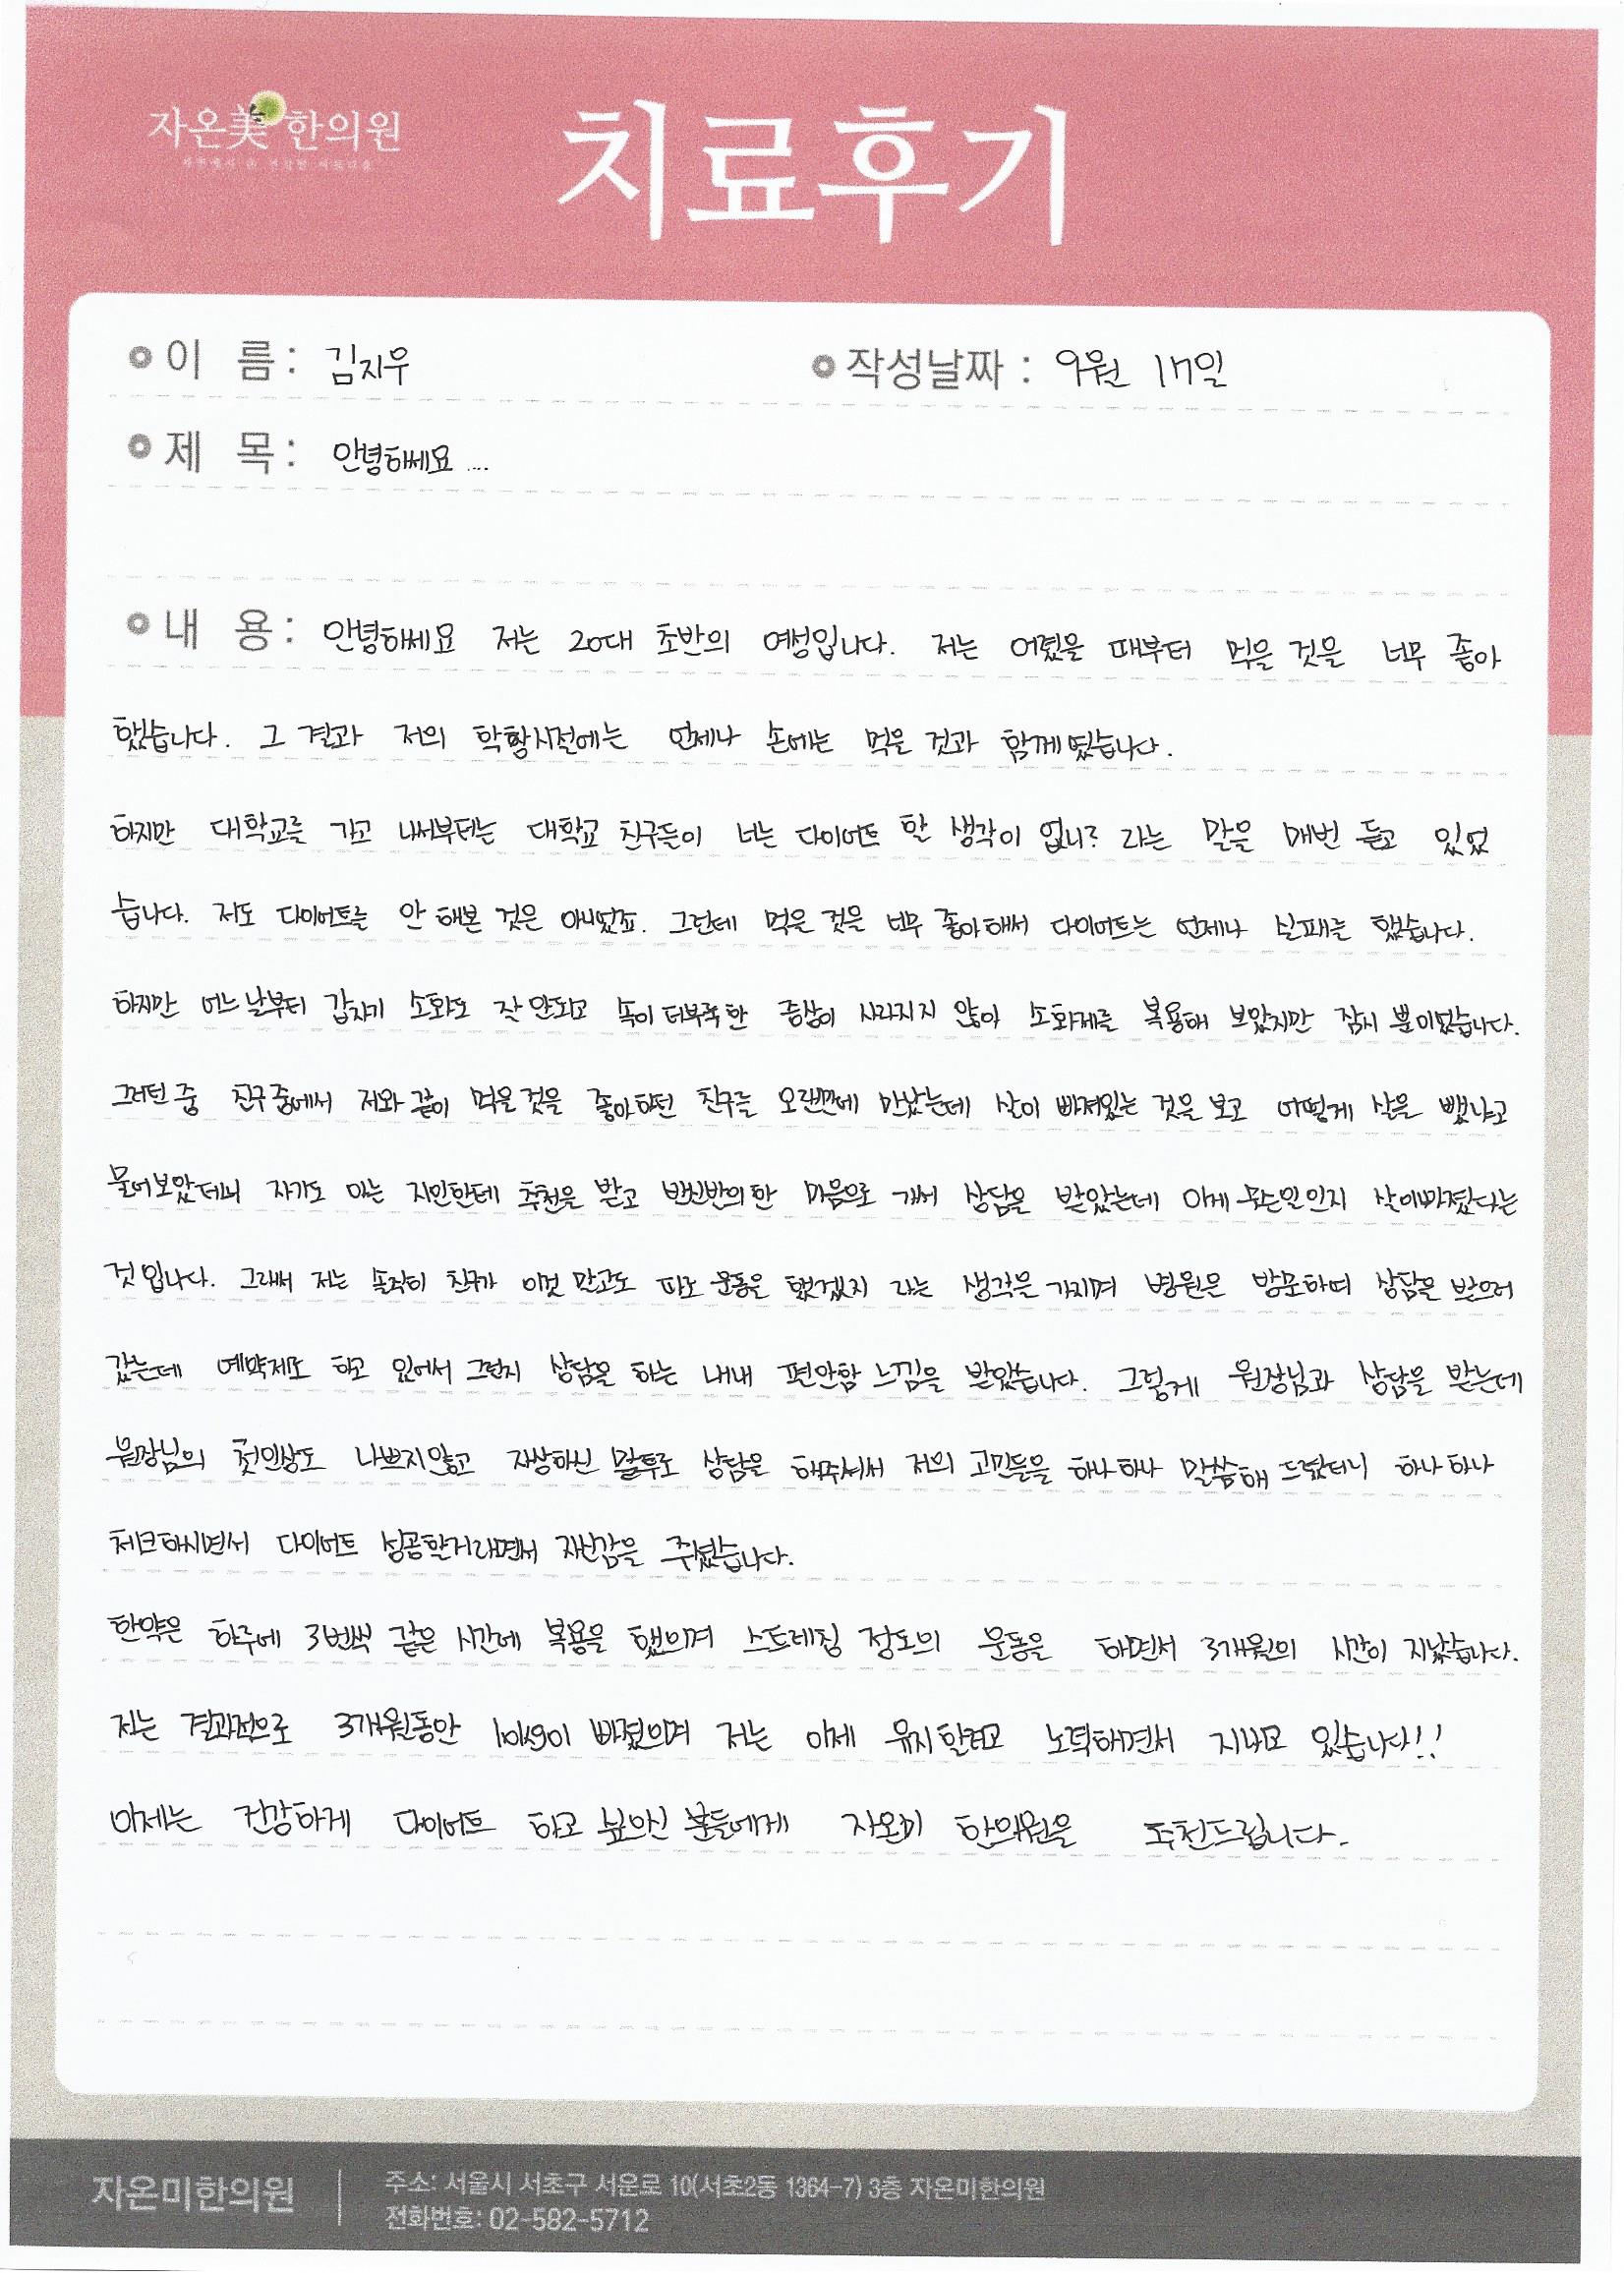 자온美한의원
치료후기
이 름: 김지우
작성날짜: 9월 17일
제 목: 안녕하세요 ...
내 용: 안녕하세요 저는 20대 초반의 여성입니다. 저는 어렸을 때부터 먹을 것을 너무 좋아
했습니다. 그 결과 저의 학창시절에는 언제나 손에는 먹을 것과 함께했습니다.
하지만 대학교를 가고 나서부터는 대학교 친구들이 너는 다이어트 할 생각이 없니? 라는 말을 매번 듣고 있었
습니다. 저도 다이어트를 안 해본 것은 아니었죠. 그런데 먹을 것을 너무 좋아해서 다이어트는 언제나 실패를 했습니다.
하지만 어느날부터 갑자기 소화도 잘 안되고 속이 더부룩한 증상이 사라지지 않아 소화제를 복용해 보았지만 잠시 뿐이었습니다.
그러던 중 친구중에서 저와 같이 먹을것을 좋아하던 친구를 오랜만에 만났는데 살이 빠져있는 것을 보고 어떻게 살을 뺐냐고
물어보았더니 자기도 아는 지인한테 추천을 받고 반신반의한 마음으로 가서 상담을 받았는데 이게 무슨일인지 살이빠졌다는
것입니다. 그래서 저는 솔직히 친구가 이것 말고도 따로 운동을 했겠지 라는 생각을 가지며 병원을 방문하여 상담을 받으러
갔는데 예약제로 하고 있어서 그런지 상담을 하는 내내 편안함 느낌을 받았습니다. 그렇게 원장님과 상담을 받는데
원장님의 첫인상도 나쁘지않고 자상하신 말투로 상담을 해주셔서 저의 고민들을 하나하나 말씀해 드렸더니 하나하나
체크하시면서 다이어트 성공할거라면서 자신감을 주셨습니다.
한약은 하루에 3번씩 같은 시간에 복용을 했으며 스트레칭 정도의 운동을 하면서 3개월의 시간이 지났습니다.
저는 결과적으로 3개월동안 10kg이 빠졌으며 저는 이제 유지할려고 노력하면서 지내고 있습니다!!
이제는 건강하게 다이어트 하고 싶으신 분들에게 자온미 한의원을 추천드립니다.
자온미한의원
주소: 서울시 서초구 서운로 10(서초2동 1364-7) 3층 자온미한의원
전화번호: 02-582-5712